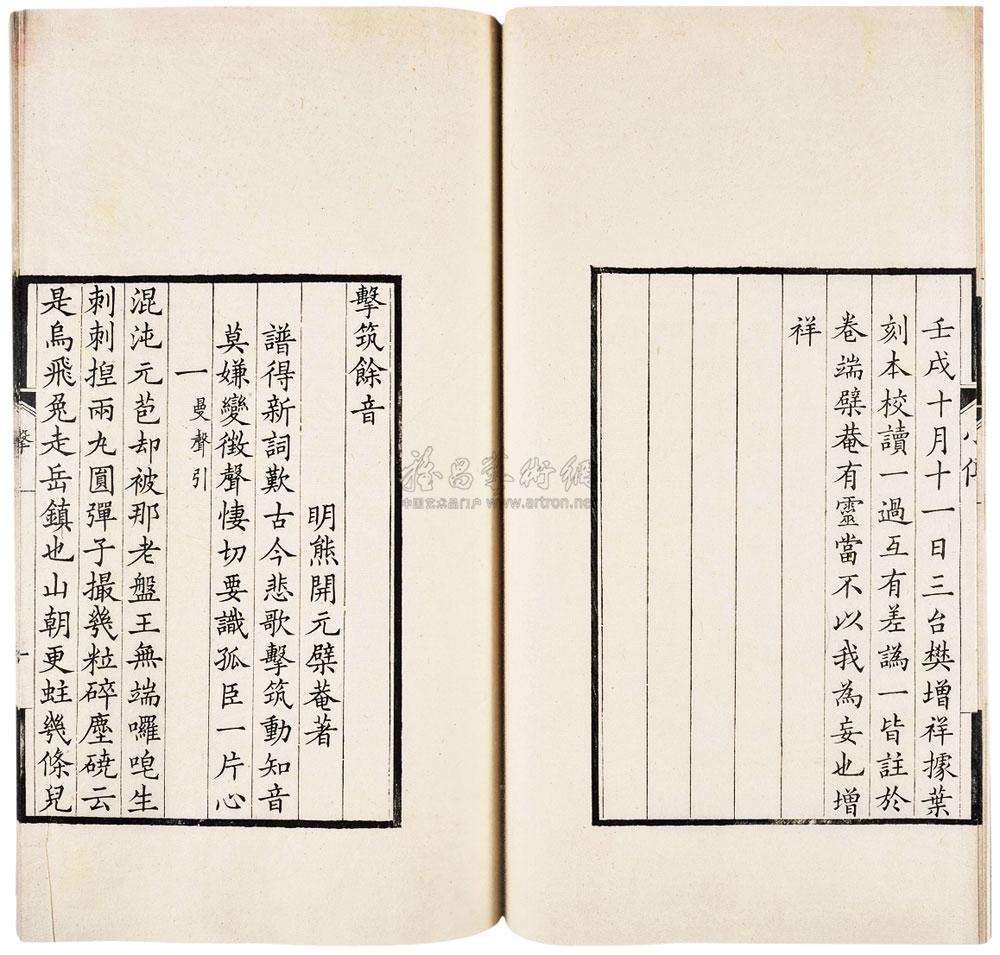 壬戌十月十一日三台樊增祥據葉
刻本校讀一過互有差譌一皆註於
卷端檗菴有靈當不以我為妄也增
祥
擊筑餘音
明熊開元檗菴著
譜得新詞歎古今悲歌擊筑動知音
莫嫌變徵聲悽切要識孤臣一片心
一 曼聲引
混沌元苞却被那老盤王無端囉唣生
刺刺捏兩丸圓彈子撮幾粒碎塵磽云
是烏飛兔走岳鎮也山朝更蛀幾條兒
中国艺术品门户 www.artron.net